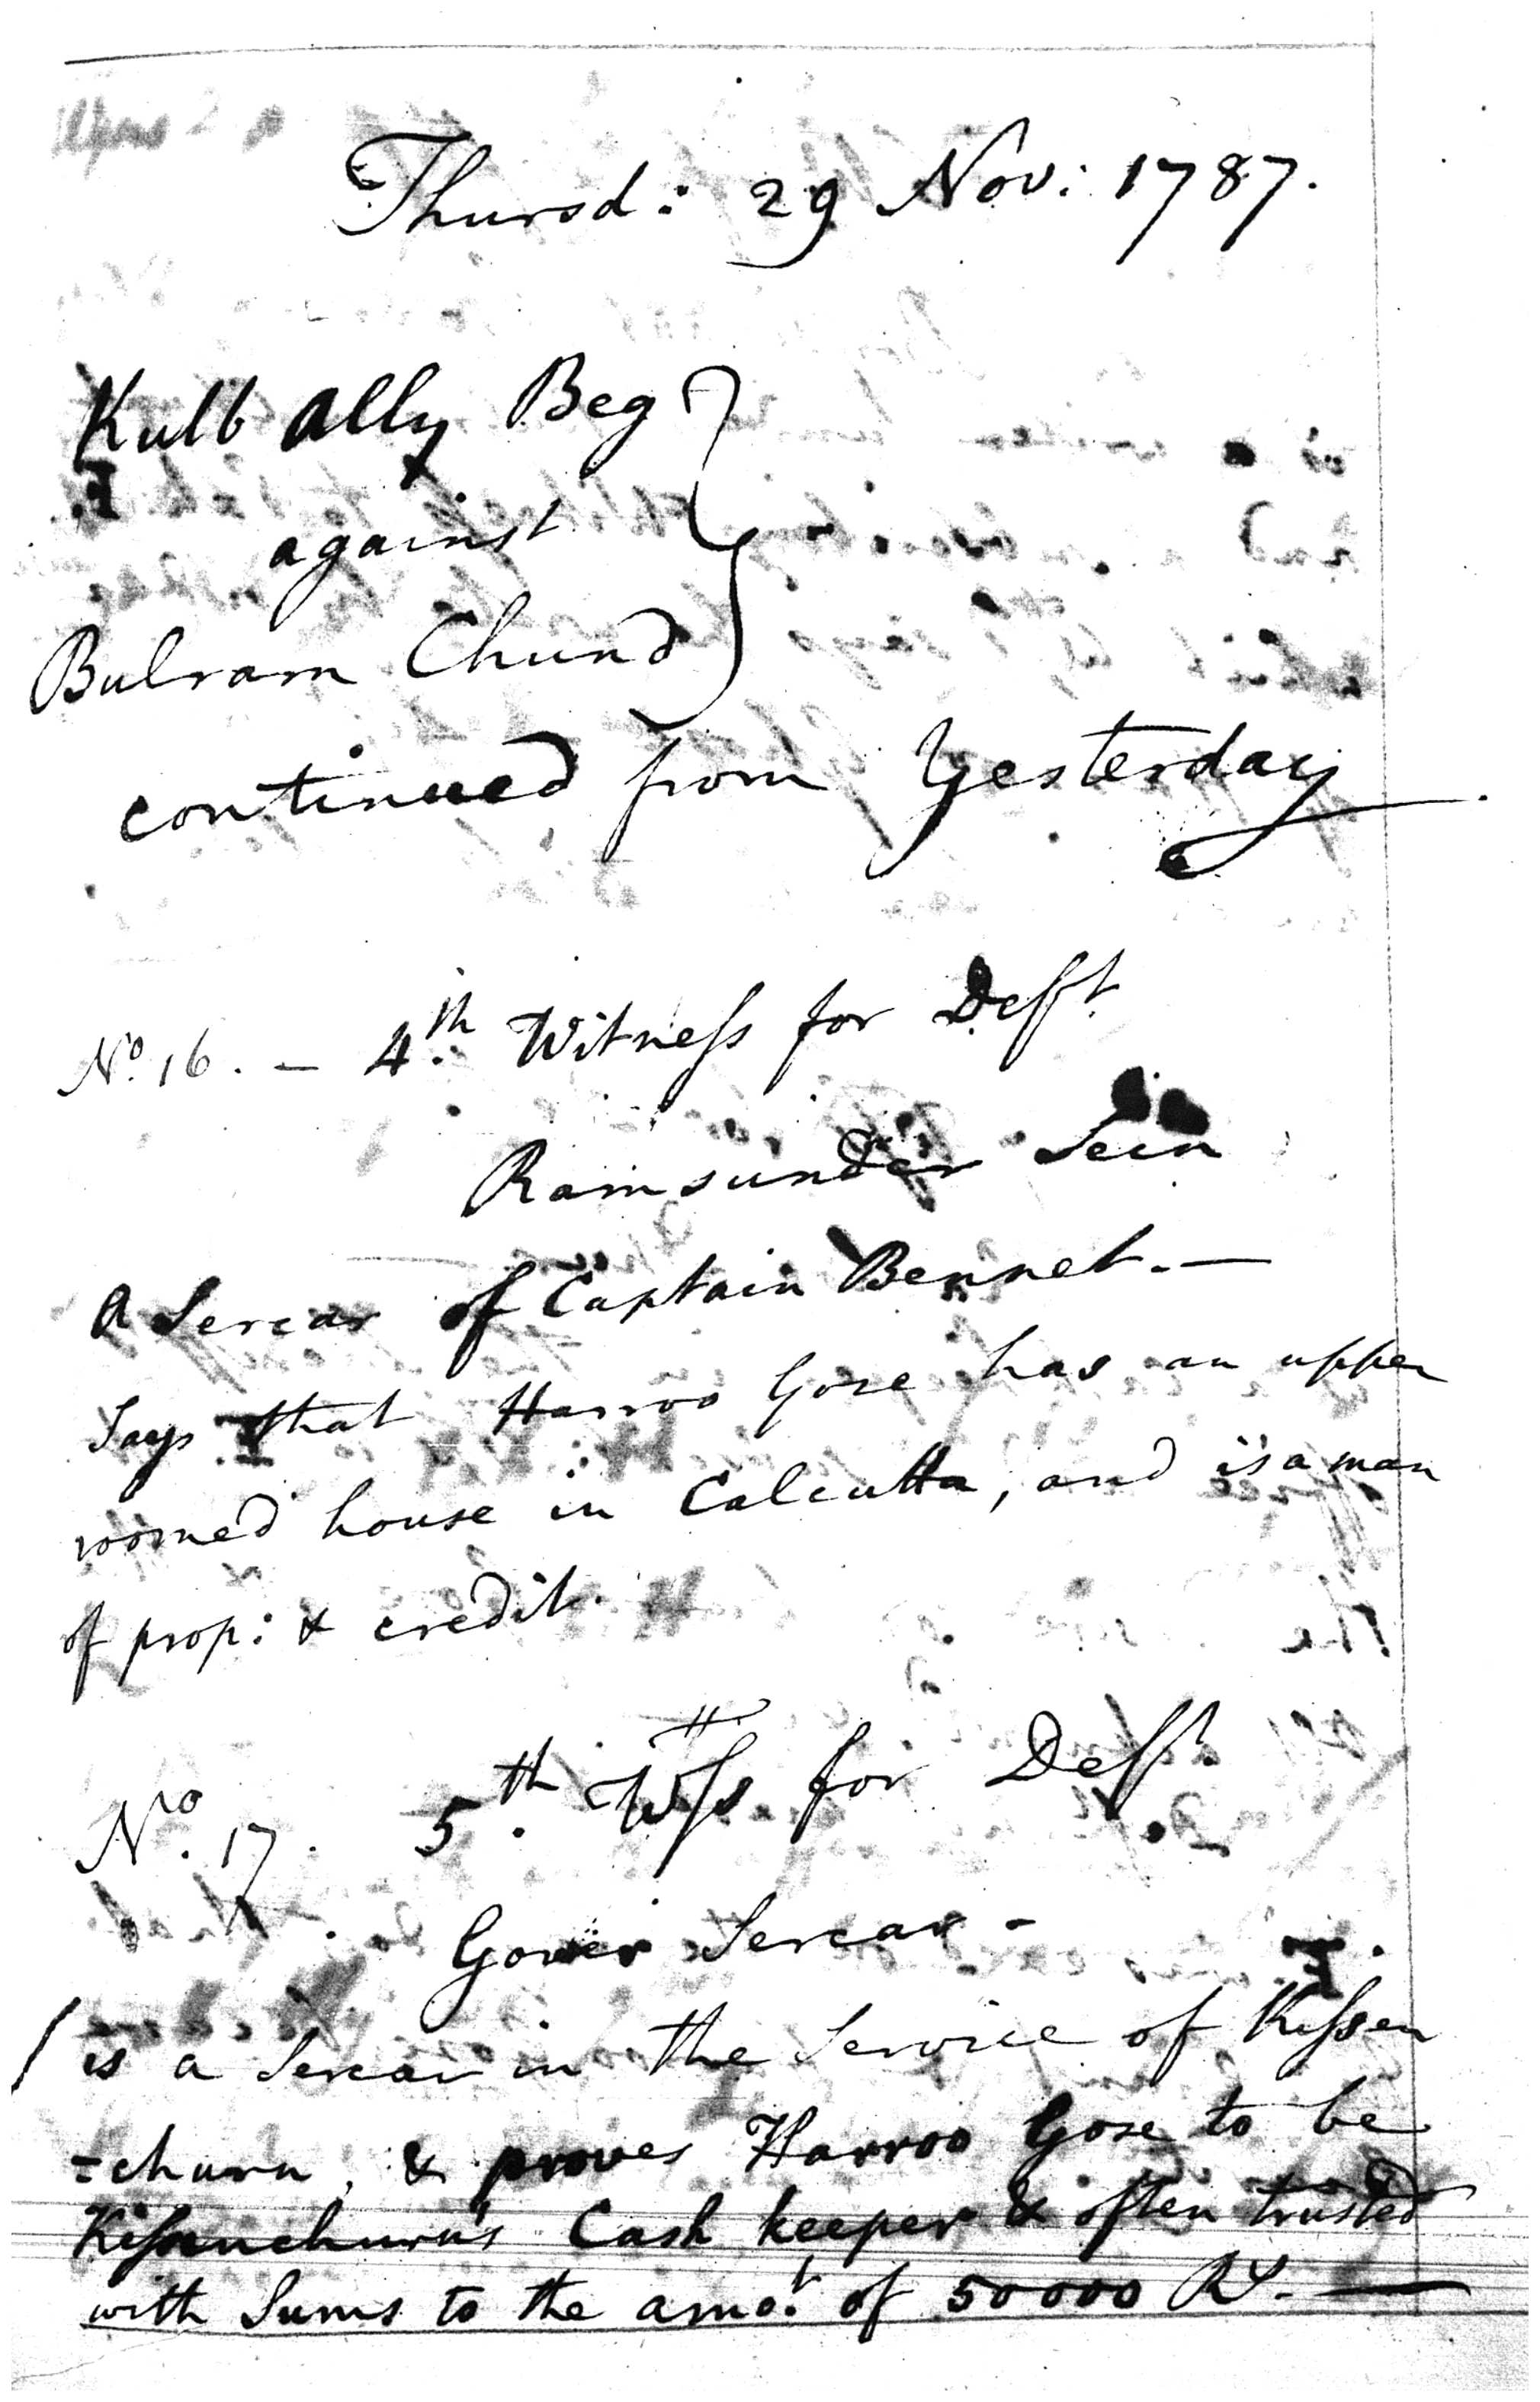 Thursd: 29 Nov: 1787.
Kulb Ally Beg
against
Bulram Chund
continued from Yesterday
No. 16. - 4th Witness for Defft
Ramsunder Sein
A Sercar of Captain Bennet. —
Says that Harroo Gose has an upper
roomed house in Calcutta, and is a man
of prop: & credit.
No. 17. 5th Wss for Defft
Gower Sercar -
is a Sercar in the Service of Kissen
=churn, & proves Harroo Gose to be
Kissenchurn's Cash keeper & often trusted
with Sums to the amot. of 50000 Rs. —